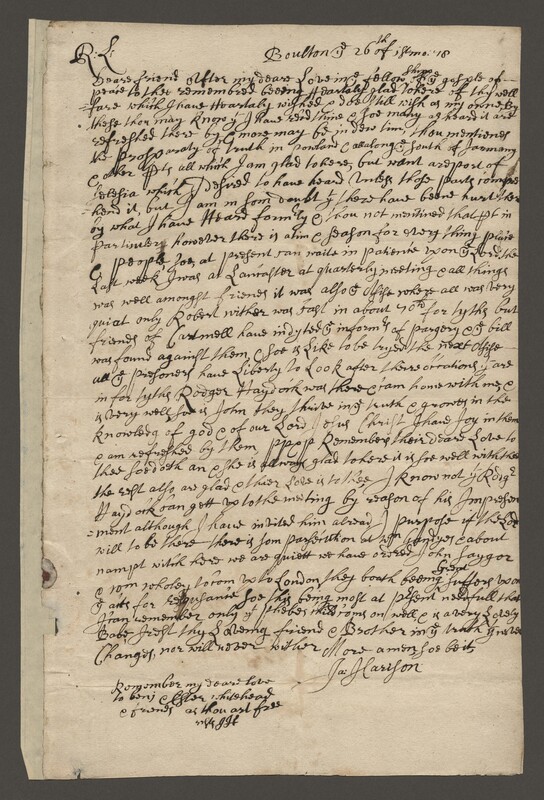 R: L:
Boulton ye 26th of 1st mo: 78
Deare friend After my deare Love in ye fellowship of ye gosple of
peace to thee remembred beeing Heartaly glad to here of thy well
fare which I have Heartaly wished & doe still wish as my owne By
these thou may know yt I have reid thine & soe many as heard it are
refreshed there by & more may be in dew time, thou mentiones
the Prosparaty of truth in & alonge ye South of Jarmany
& other pts all which I am glad to here, but want a report of
Silesia which I desired to have heard Unless those parts compre
hend it, but I am in som doubt yt there have beene hurt there
by what I have Heard formerly & thou not mentioned that pt in
Particuler however there is a time & season for every thing
people soe at present can waite in patience upon ye Lord, the
Last week I was at Lancaster at quarterly meeting & all things
was well amongst friends it was also ye Assise where all was very
quiat only Robert wither was cast in about 70ld for tyths but
friends of Cartmell have indyted ye informrs of pargery & ye bill
was found against them & soe is Like to be tryed the next Assise
all ye presoners have Liberty to Look after there occations yt are
in for tyths Rodger Haydock was there & cam home with me &
is very well soe is John they thrive in ye truth & growes in the
knowledg of god & of our Lord Jesus Christ I have Joy in them
& am refreshed by them Remember their deare Love to
thee soe doth an & she is allways glad to here it is soe well with thee
the rest also are glad & thier Love is to thee I know not yt Rodgr
Haydock can gett up to the meeting by reason of his Impreson
ment although I have invited him alread I purpose if the Lord
will to be there there is som parsecution at & about
nampt with here we are quiett we have ordered John Saygor
& to com up to London they boath beeing great suffers upon
ye atts for soe this being most at psent needfull that
I can remember only yt children coms on well & is a very Lovely
Babe I rest thy Loveing friend & Brother in ye truth yt never
Changes, nor will never wither More amen soe be it
Ja: Harison
Remember my deare love
to benj & whitehead
& friends as thou art free